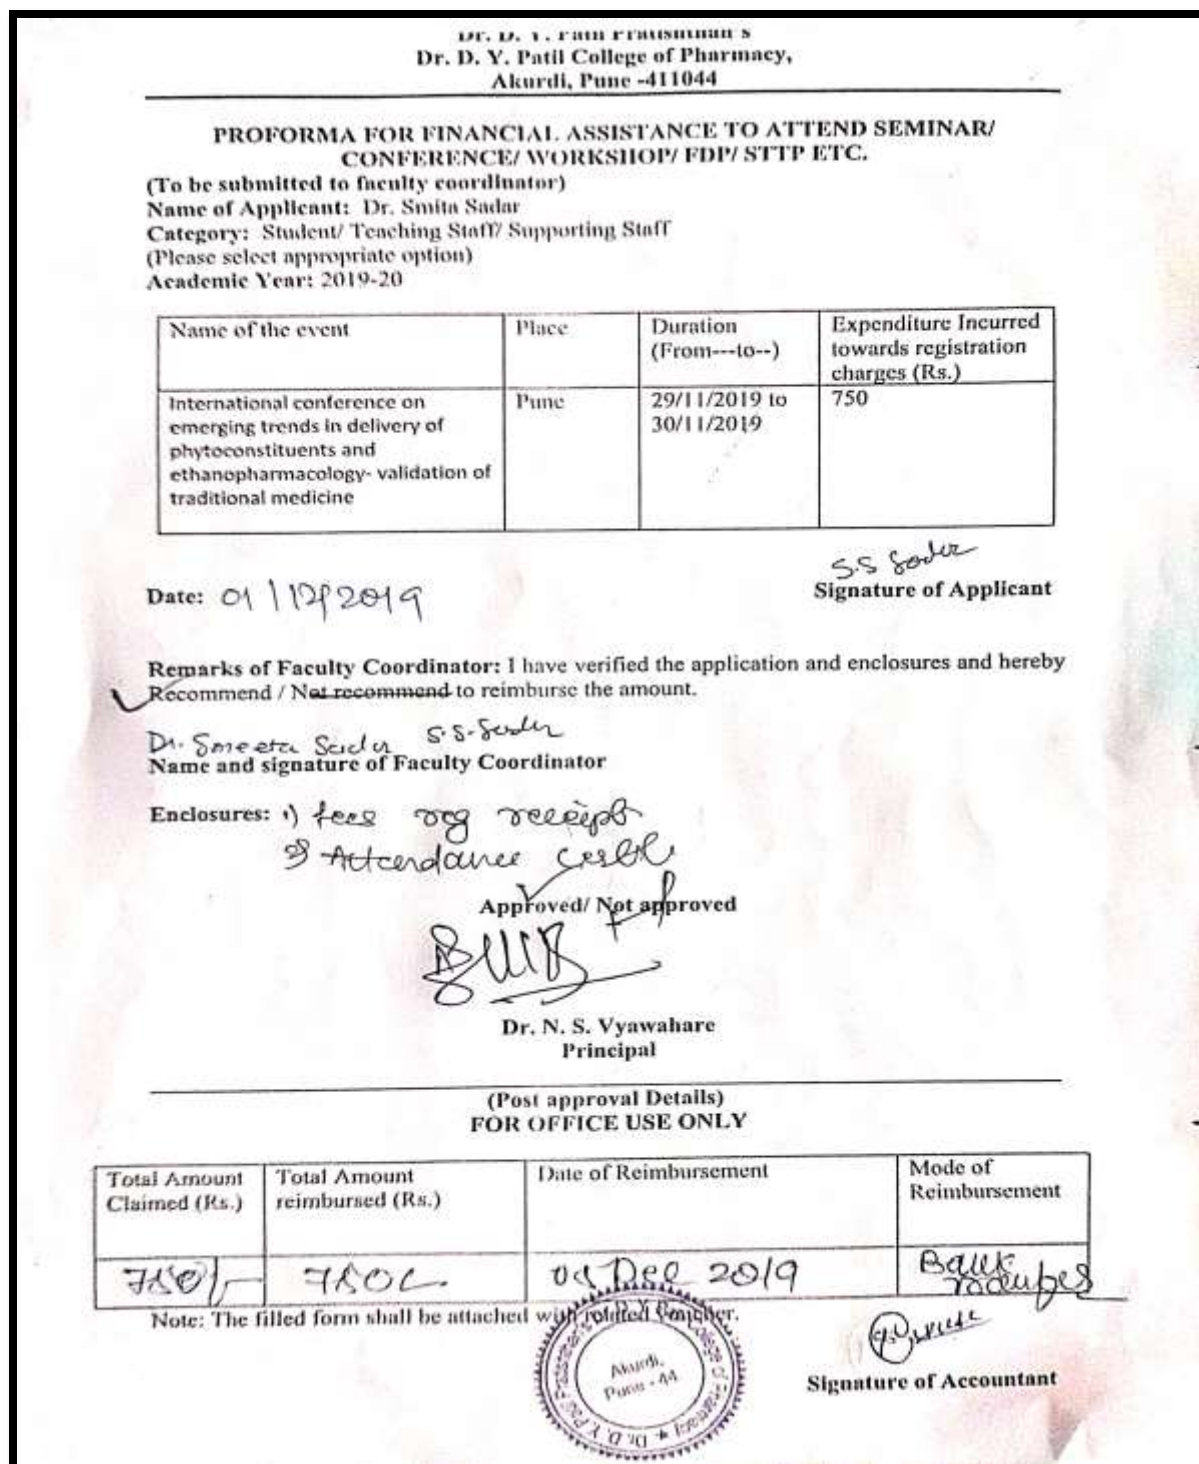 Dr. D. Y. Patil Pratishthan's
Dr. D. Y. Patil College of Pharmacy,
Akurdi, Pune -411044
PROFORMA FOR FINANCIAL ASSISTANCE TO ATTEND SEMINAR/
CONFERENCE/ WORKSHOP/ FDP/ STTP ETC.
(To be submitted to faculty coordinator)
Name of Applicant: Dr. Smita Sadar
Category: Student/ Teaching Staff/ Supporting Staff
(Please select appropriate option)
Academic Year: 2019-20
Name of the event
Place
Duration
(From---to--)
Expenditure Incurred
towards registration
charges (Rs.)
International conference on
emerging trends in delivery of
phytoconstituents and
ethanopharmacology- validation of
traditional medicine
Pune
29/11/2019 to
30/11/2019
750
S.S Sadar
Date: 01/12/2019
Signature of Applicant
Remarks of Faculty Coordinator: I have verified the application and enclosures and hereby
Recommend / Not recommend to reimburse the amount.
Dr. Smeeta Sadar S.S. Sadar
Name and signature of Faculty Coordinator
Enclosures: 1) fees reg receipt
2) Attendance
Approved/ Not approved
Dr. N. S. Vyawahare
Principal
(Post approval Details)
FOR OFFICE USE ONLY
Total Amount
Claimed (Rs.)
Total Amount
reimbursed (Rs.)
Date of Reimbursement
Mode of
Reimbursement
750/-
750/-
Dec 2019
Bank
Note: The filled form shall be attached with related Voucher.
Dr. D. Y. Patil Pratishthan's College of Pharmacy
Akurdi,
Pune - 44
Signature of Accountant